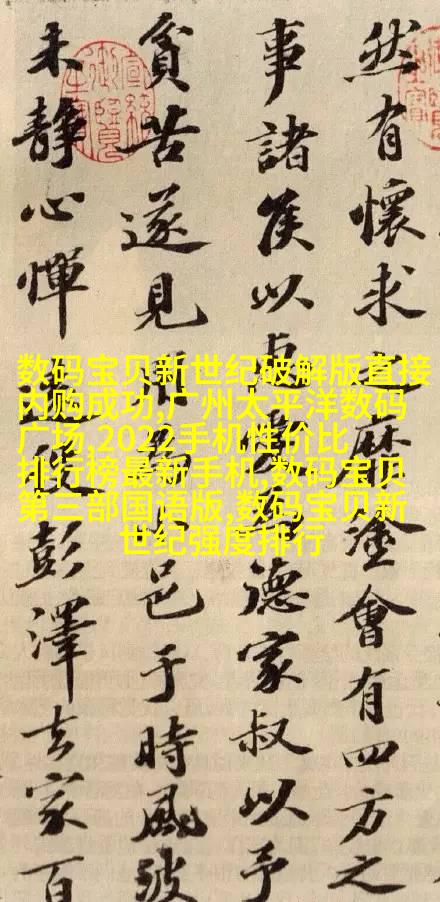 然有懷求之靡塗會有四方之
事諸侯以惠愛為德家叔以予
貧苦遂見用為小邑于時風波
未靜心憚遠役彭澤去家百
数码宝贝新世纪破解版直接
内购成功,广州太平洋数码
广场,2022手机性价比
排行榜最新手机,数码宝贝
第三部国语版,数码宝贝新
世纪强度排行